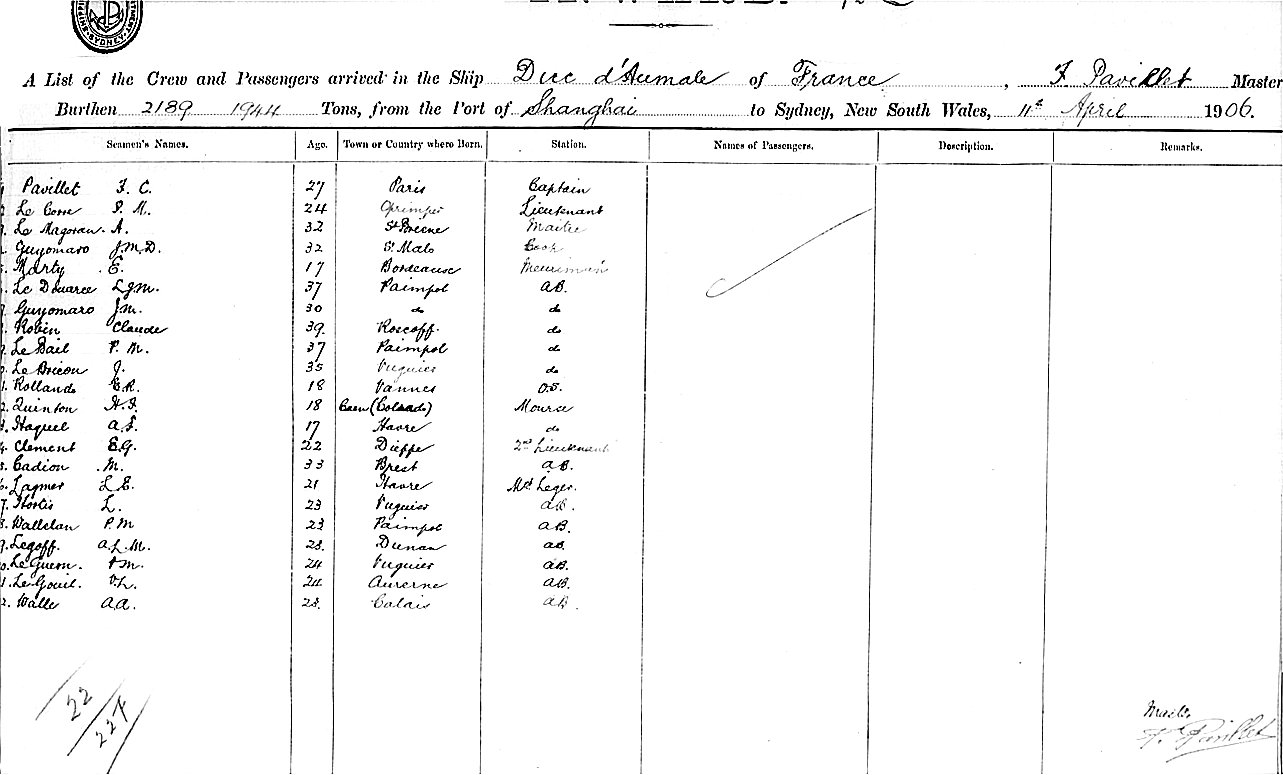 SYDNEY
A List of the Crew and Passengers arrived in the Ship Duc d'Aumale of France, F Pavillet Master
Burthen 2189 1944 Tons, from the Port of Shanghai to Sydney, New South Wales, 11th April 1906.
Seamen's Names. Age. Town or Country where Born. Station. Names of Passengers. Description. Remarks.
Pavillet F. C. 27 Paris Captain
Le Corre P. M. 24 Lieutenant
Le Magoran A. 32 St Briene Maitre
Guyomaro J.M.D. 32 St Malo Cook
Marty E. 17 Bordeause
Le Douarce L.J.M. 37 Paimpol AB.
Guyomaro J.M. 30 do do
Robin Claude 39 Roscoff. do
Le Bail P. M. 37 Paimpol do
Le Bricon J. 35 do
Rolland E.R. 18 Vannes O.S.
2. Quinton H. F. 18 Caen Mousse
3. Haquel A.F. 17 Havre do
4. Clement E.G. 22 Dieppe 2nd Lieutenant
5. Cadion M. 33 Brest A.B.
6. L. E. 21 Havre
7. Hostis L. 23 A.B.
8. Wallelan P.M 23 Paimpol AB.
9. Legoff. A.L.M. 23. Dinan AB.
0. Le Guern. 24 AB.
1. Le Gouil. 24 AB.
2. Walle A.A. 23. Calais AB.
22
227
Master
F. Pavillet